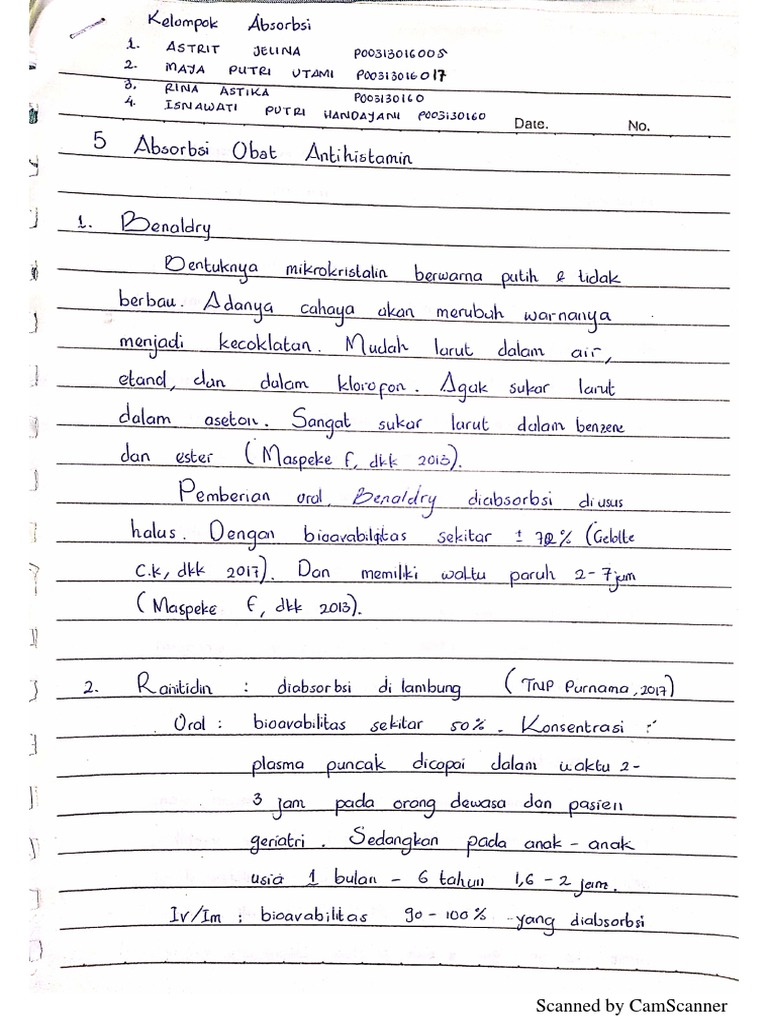 Kelompok Absorbsi
1. ASTRIT JELINA P00313016005
2. MAJA PUTRI UTAMI P00313016017
3. RINA ASTIKA P003130160
4. ISNAWATI PUTRI HANDAYANI P003130160
Date. No.
5 Absorbsi Obat Antihistamin
1. Benaldry
Bentuknya mikrokristalin berwarna putih & tidak
berbau. Adanya cahaya akan merubah warnanya
menjadi kecoklatan. Mudah larut dalam air,
etanol, dan dalam klorofon. Agak sukar larut
dalam aseton. Sangat sukar larut dalam benzene
dan ester (Maspeke F, dkk 2013).
Pemberian oral, Benaldry diabsorbsi di usus
halus. Dengan bioavabilitas sekitar ± 72% (Gelotte
C.k, dkk 2017). Dan memiliki waktu paruh 2-7 jam
(Maspeke F, dkk 2013).
2. Ranitidin : diabsorbsi di lambung (TNP Purnama, 2017)
Oral : bioavabilitas sekitar 50%. Konsentrasi
plasma puncak dicapai dalam waktu 2-
3 jam pada orang dewasa dan pasien
geriatri. Sedangkan pada anak-anak
usia 1 bulan - 6 tahun 1,6 - 2 jam.
Iv/Im : bioavabilitas 90-100% yang diabsorbsi
Scanned by CamScanner